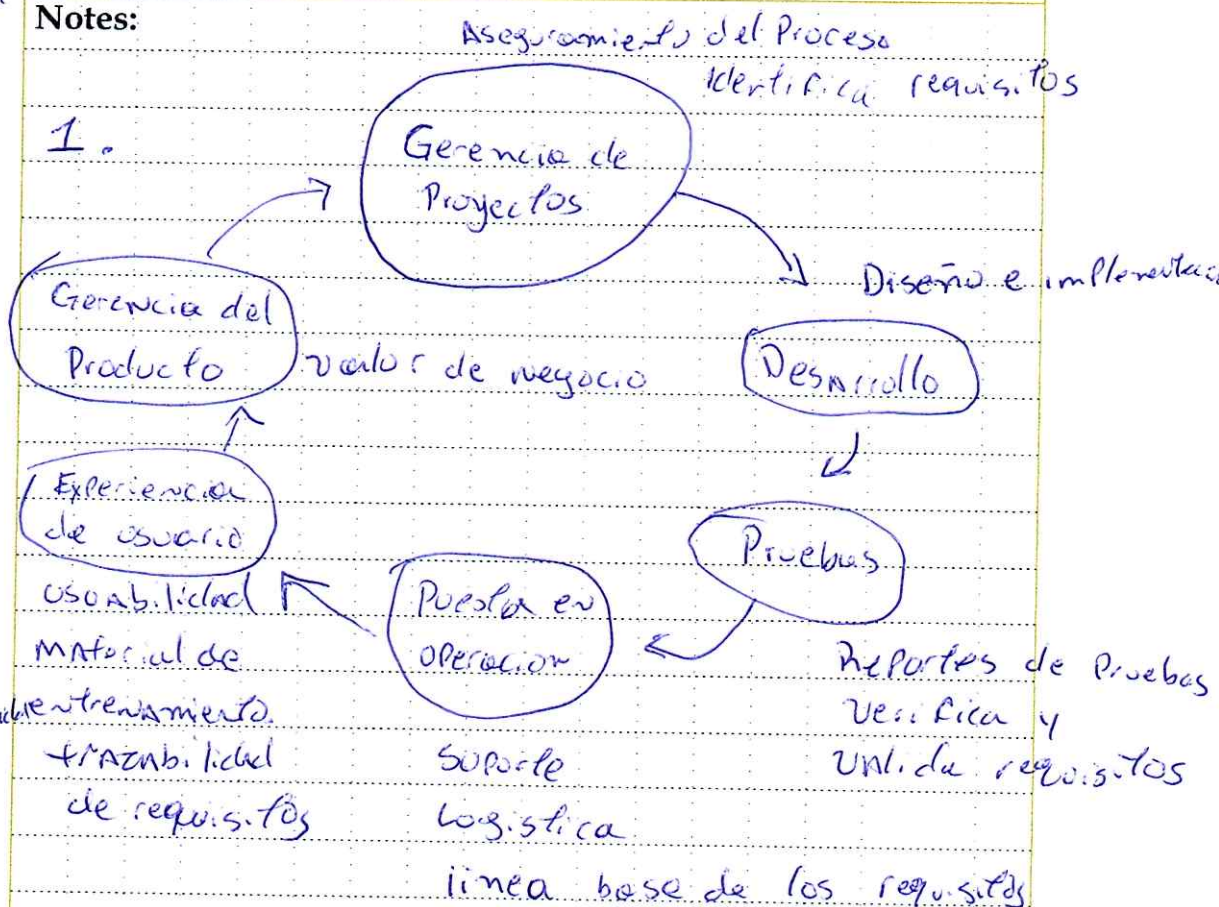 Notes:
Aseguramiento del Proceso
Identifica requisitos
1.
Gerencia de
Proyectos
Diseño e implementac
Gerencia del
Producto
valor de negocio
Desarrollo
Experiencia
de usuario
Pruebas
Puesta en
operacion
usuabilidad
material de
entrenamiento
trazabilidad
de requisitos
Reportes de Pruebas
Verifica y
Valida requisitos
Soporte
Logistica
linea base de los requisitos